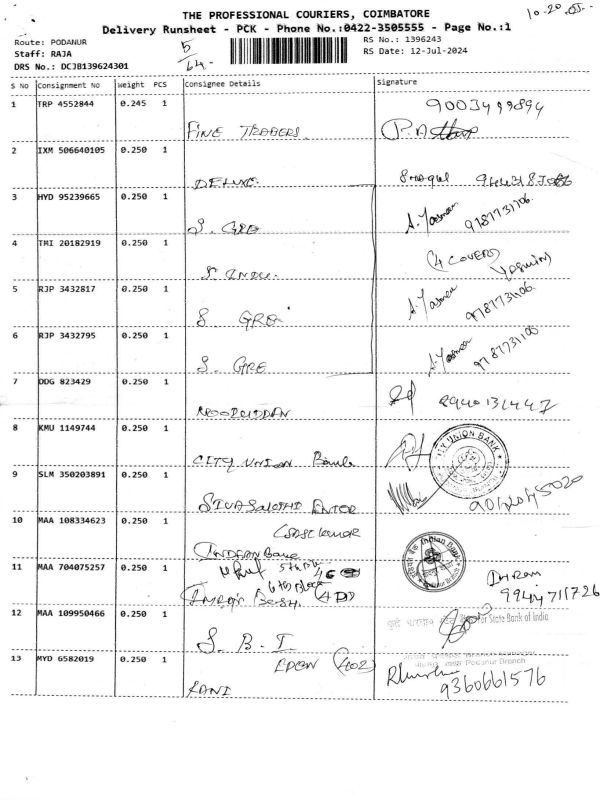 THE PROFESSIONAL COURIERS, COIMBATORE
10-20
Delivery Runsheet - PCK - Phone No.:0422-3505555 - Page No.:1
Route: PODANUR
Staff: RAJA
DRS No.: DCJB139624301
5/64-
RS No.: 1396243
RS Date: 12-Jul-2024
S No Consignment No Weight PCS Consignee Details Signature
1 TRP 4552844 0.245 1
FINE TRADERS
2 IXM 506640105 0.250 1
DELUXE
3 HYD 95239665 0.250 1
S. GRE
A. Yasmeen 9787731106
4 TMI 20182919 0.250 1
(4 COVERS)
S INDU. Yasmin
5 RJP 3432817 0.250 1
S GRE
A. Yasmeen 9787731106
6 RJP 3432795 0.250 1
S. GRE
A. Yasmeen 9787731106
7 DDG 823429 0.250 1
NOORUDDAN
8940131447
8 KMU 1149744 0.250 1
CITY UNION Bank
UNION BANK
9 SLM 350203891 0.250 1
10 MAA 108334623 0.250 1
INDIAN Bank
Indian Bank
11 MAA 704075257 0.250 1
5th Blk
6th Block
(4D)
Imran
9944711726
12 MAA 109950466 0.250 1
S. B. I
For State Bank of India
Podanur Branch
13 MYD 6582019 0.250 1
EDEN (402)
RANI
9360661576